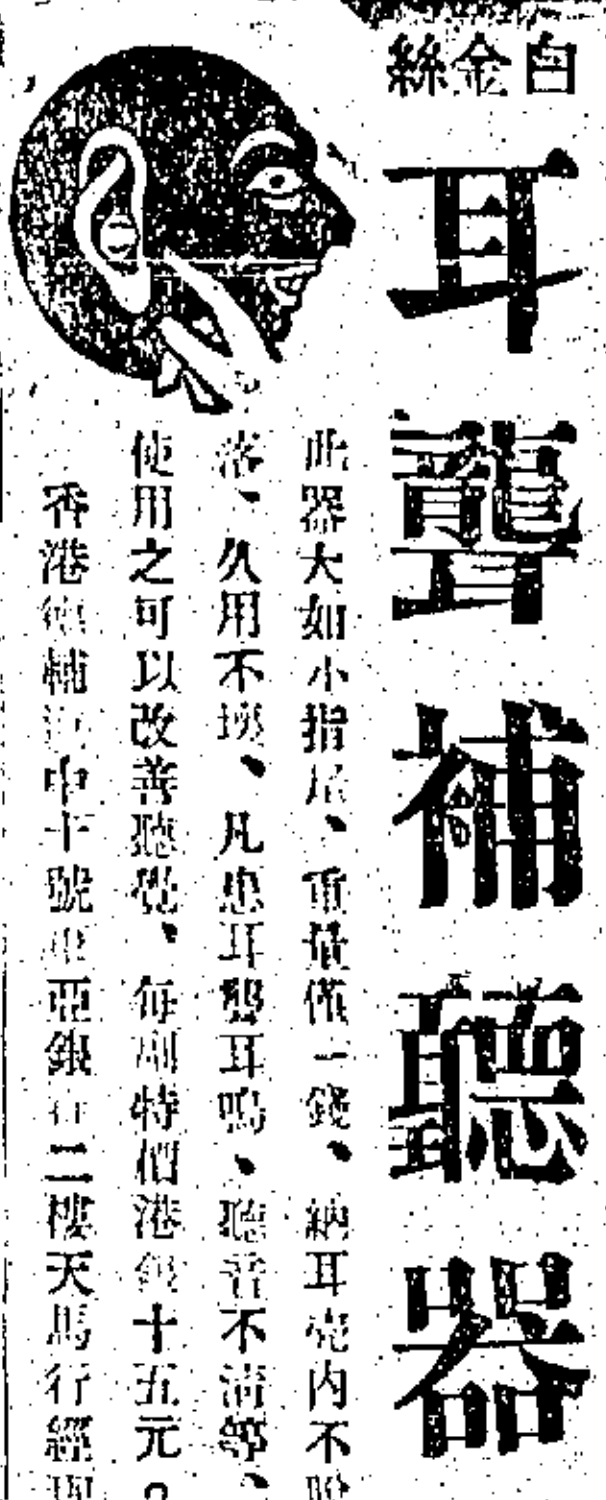 白金絲
耳聾補聽器
此器大如小指尖、重量僅一錢、納耳壳内不脫
落、久用不壞、凡患耳聾耳鳴、聽音不清等、
使用之可以改善聽覺、每副特價港銀十五元。
香港德輔道中十號東亞銀行二樓天馬行經理